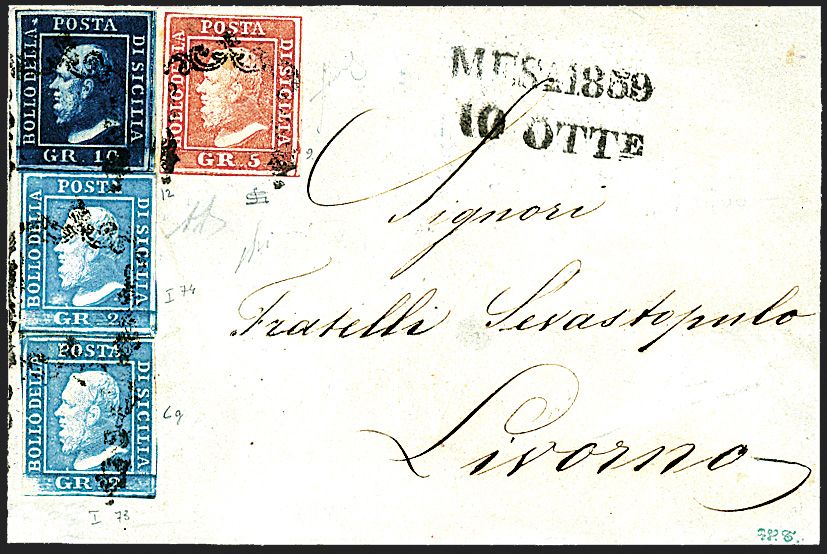 POSTA
BOLLO DELLA
DI SICILIA
GR. 10
POSTA
BOLLO DELLA
DI SICILIA
GR. 5
MES. 1859
10 OTTE
POSTA
BOLLO DELLA
DI SICILIA
GR. 2
POSTA
BOLLO DELLA
DI SICILIA
GR. 2
12
9
I 74
69
I 73
Signori
Fratelli Sevastopulo
Livorno